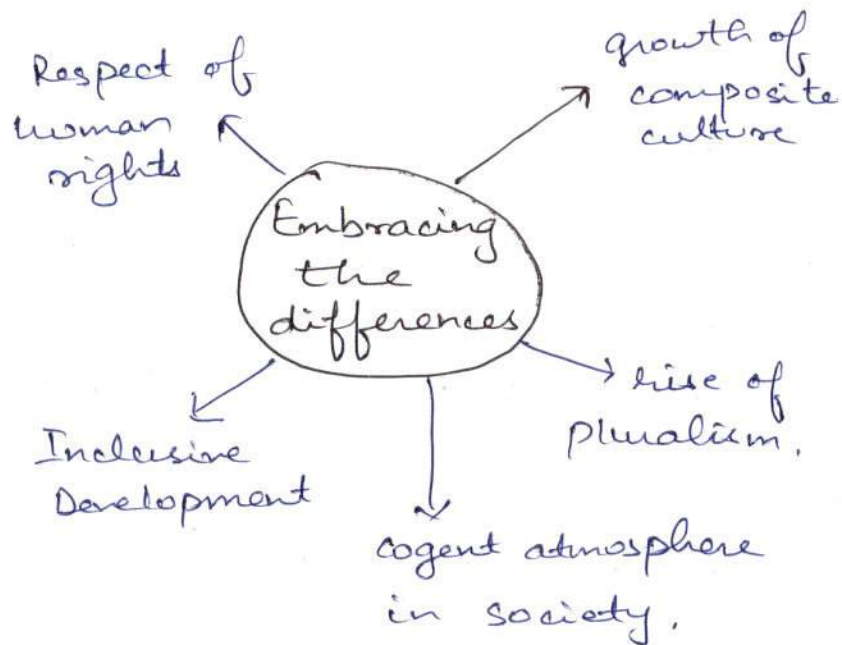 Respect of
human
rights
growth of
composite
culture
Embracing
the
differences
rise of
pluralism.
Inclusive
Development
cogent atmosphere
in society.